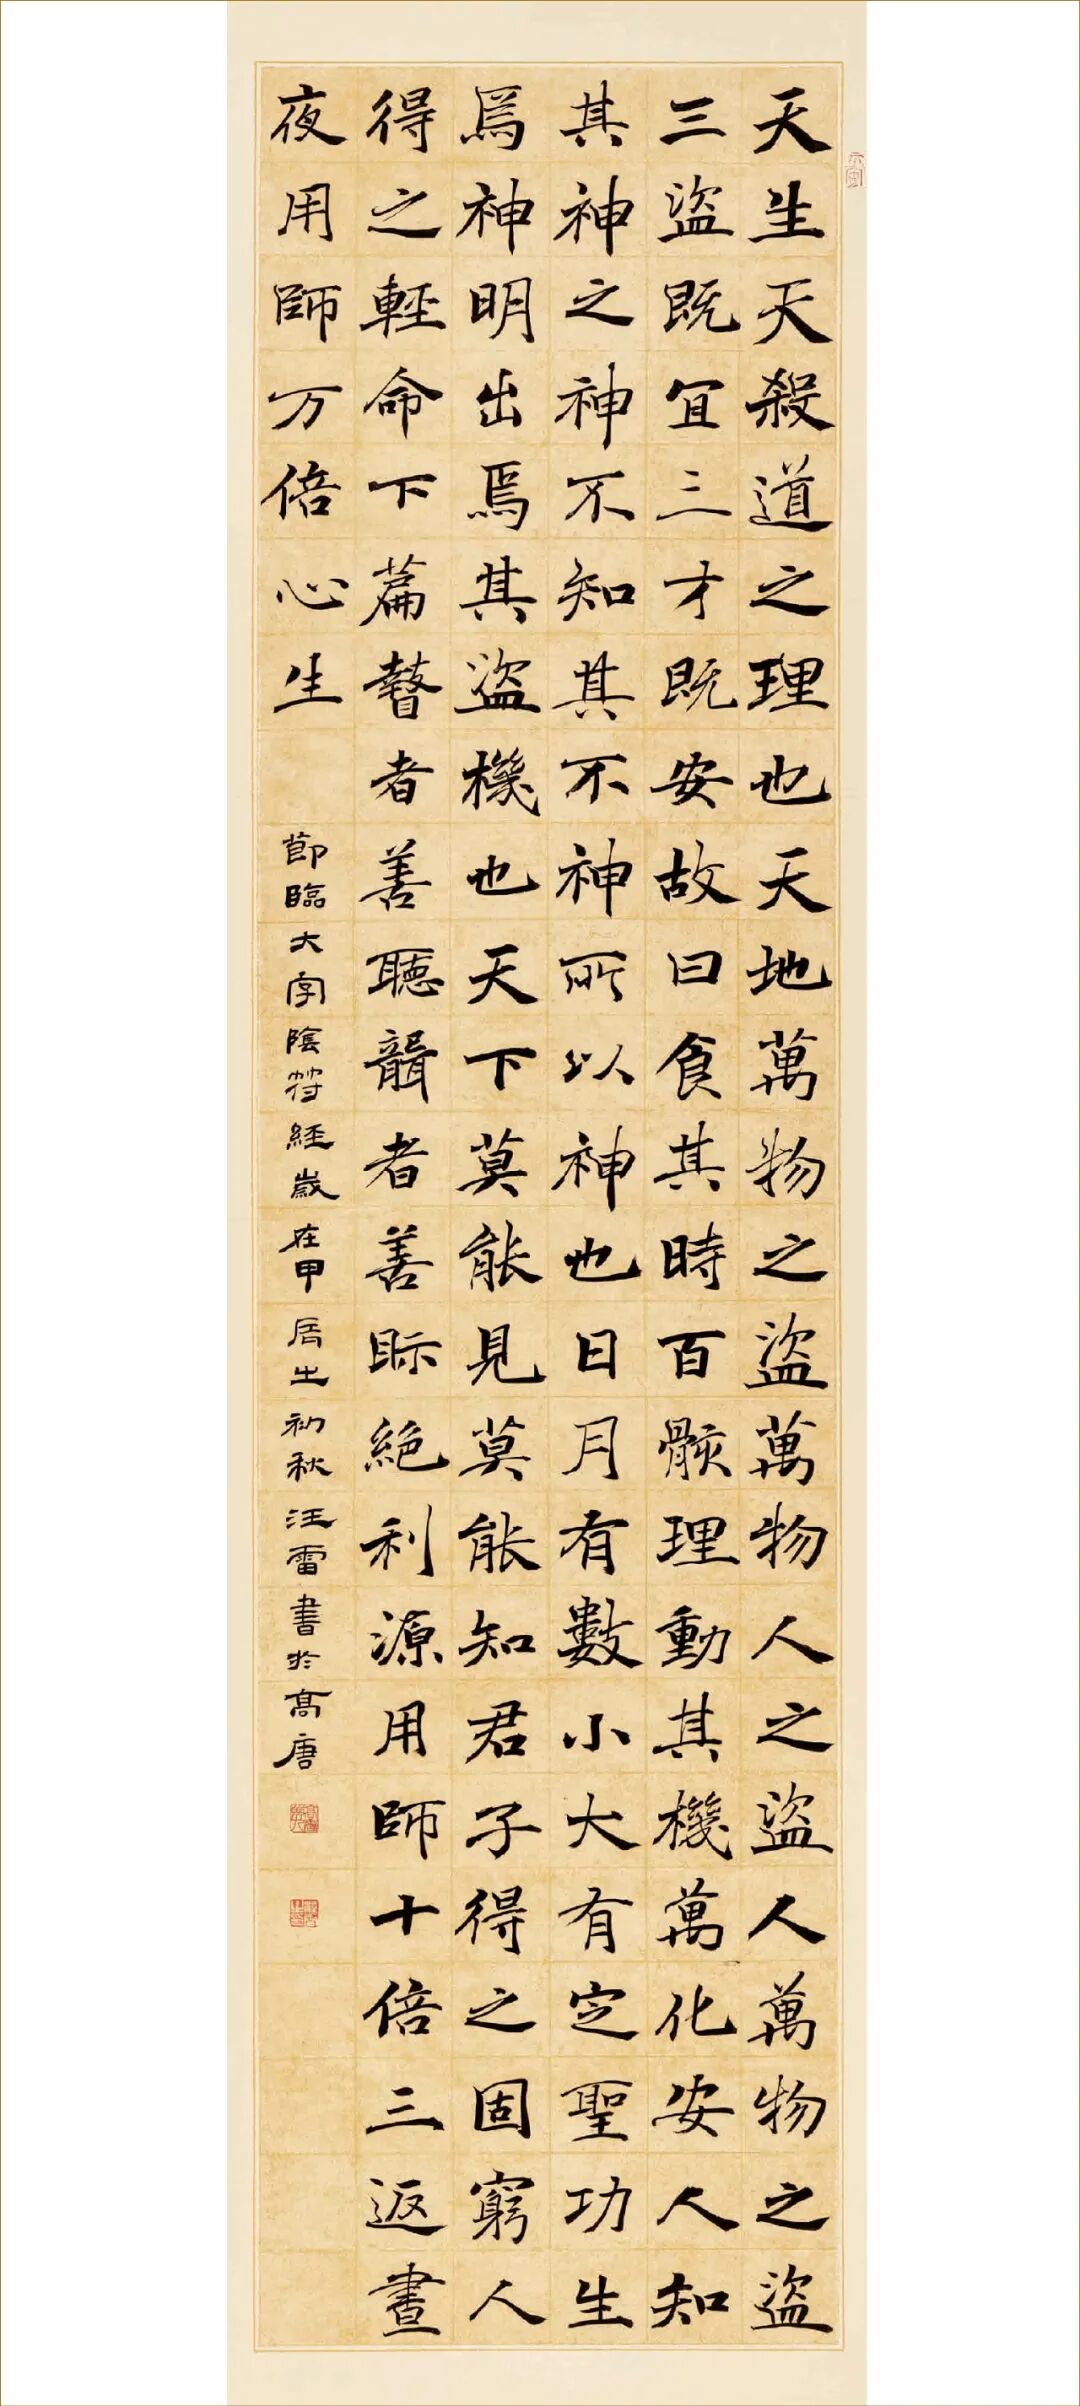 天生天殺道之理也天地萬物之盜萬物人之盜人萬物之盜
三盜既宜三才既安故曰食其時百骸理動其機萬化安人知
其神之神不知其不神所以神也日月有數小大有定聖功生
焉神明出焉其盜機也天下莫能見莫能知君子得之固窮人
得之輕命下篇瞽者善聽聾者善眎絕利源用師十倍三返晝
夜用師万倍心生
節臨大字陰符經歲在甲辰之初秋汪雷書於高唐